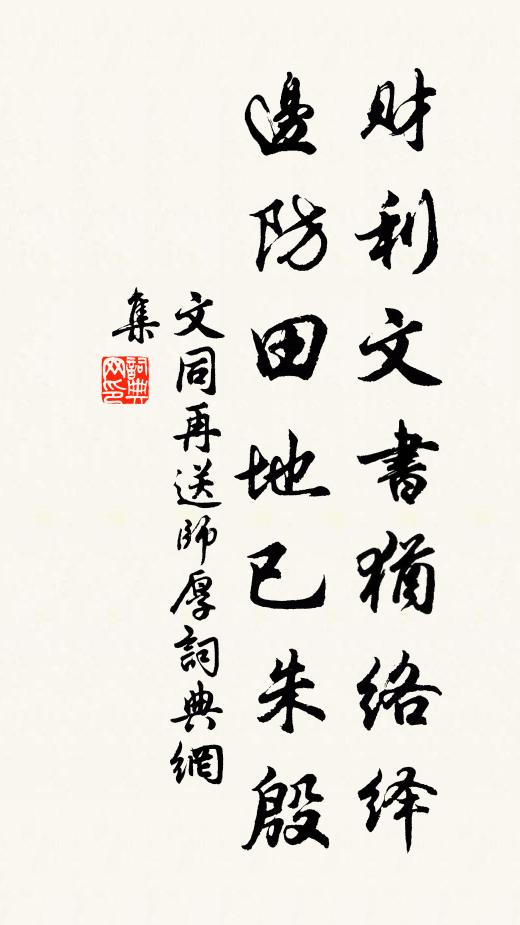 财利文書猶络绎
邊防田地已朱殷
文同再送師厚詞典網
集
詞典网印